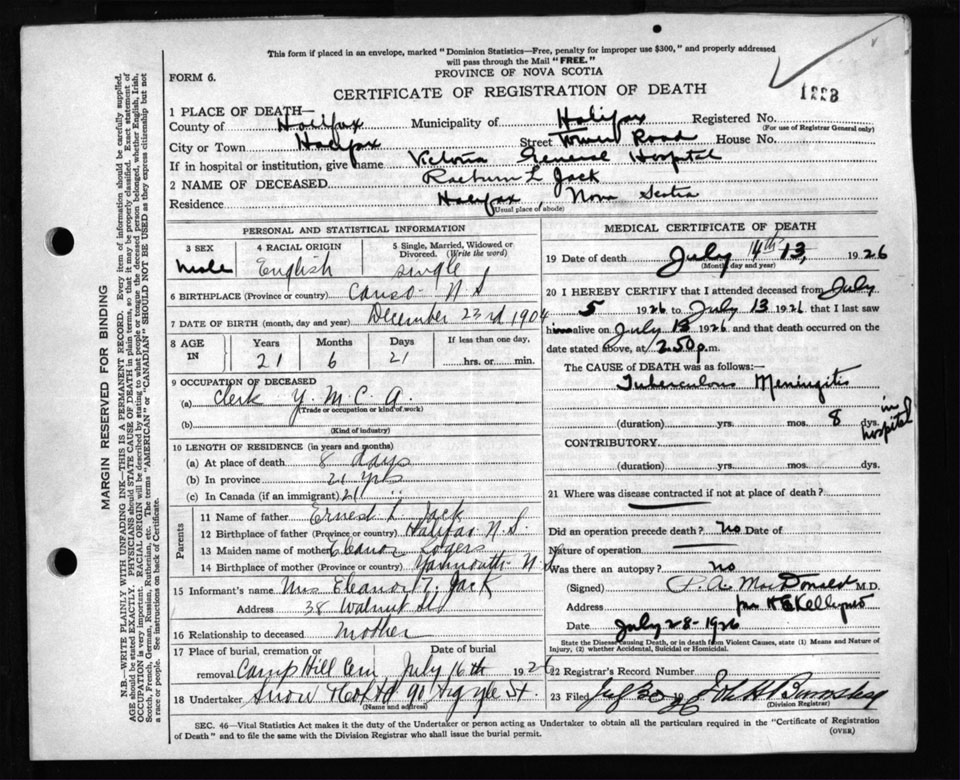 This form if placed in an envelope, marked "Dominion Statistics—Free, penalty for improper use $300," and properly addressed
will pass through the Mail "FREE."
FORM 6.
PROVINCE OF NOVA SCOTIA
CERTIFICATE OF REGISTRATION OF DEATH
1223
1 PLACE OF DEATH—
County of Halifax Municipality of Halifax Registered No.
(For use of Registrar General only)
City or Town Halifax Street Tower Road House No.
If in hospital or institution, give name Victoria General Hospital
2 NAME OF DECEASED Raeburn L Jack
Residence Halifax, Nova Scotia
(Usual place of abode)
PERSONAL AND STATISTICAL INFORMATION
3 SEX male
4 RACIAL ORIGIN English
5 Single, Married, Widowed or
Divorced. (Write the word)
single
6 BIRTHPLACE (Province or country) Canso N S
7 DATE OF BIRTH (month, day and year) December 23rd 1904
8 AGE IN
Years 21
Months 6
Days 21
If less than one day,
hrs. or min.
9 OCCUPATION OF DECEASED
(a) Clerk Y. M. C. A.
(Trade or occupation or kind of work)
(b)
(Kind of industry)
10 LENGTH OF RESIDENCE (in years and months)
(a) At place of death 8 days
(b) In province 21 yrs
(c) In Canada (if an immigrant) 21 "
Parents
11 Name of father Ernest L Jack
12 Birthplace of father (Province or country) Halifax N. S.
13 Maiden name of mother Eleanor
14 Birthplace of mother (Province or country) Yarmouth N S
15 Informant's name Mrs Eleanor Jack
Address 38 Walnut St
16 Relationship to deceased mother
17 Place of burial, cremation or
removal Camp Hill Cem
Date of burial
July 16th 1926
18 Undertaker Snow & Co Ltd 90 Argyle St.
(Name and address)
MEDICAL CERTIFICATE OF DEATH
19 Date of death July 14th 13, 1926
(Month, day and year)
20 I HEREBY CERTIFY that I attended deceased from July
5 1926 to July 13 1926 that I last saw
him alive on July 13 1926. and that death occurred on
date stated above, at 2.50 p.m.
The CAUSE OF DEATH was as follows:—
Tuberculous Meningitis
(duration) yrs. mos. 8 dys. in hospital
CONTRIBUTORY
(duration) yrs. mos. dys.
21 Where was disease contracted if not at place of death?
Did an operation precede death? no Date of
Nature of operation
Was there an autopsy? no
(Signed) P. A. MacDonald M.D.
Address
Date July 28-1926
State the Disease causing Death, or in death from Violent Causes, state (1) Means and Nature of
Injury, (2) whether Accidental, Suicidal or Homicidal.
22 Registrar's Record Number
23 Filed July 30 1926
(Division Registrar)
SEC. 46—Vital Statistics Act makes it the duty of the Undertaker or person acting as Undertaker to obtain all the particulars required in the "Certificate of Registration
of Death" and to file the same with the Division Registrar who shall issue the burial permit.
(OVER)
MARGIN RESERVED FOR BINDING
N.B.—WRITE PLAINLY WITH UNFADING INK—THIS IS A PERMANENT RECORD. Every item of information should be carefully supplied.
AGE should be stated EXACTLY. PHYSICIANS should STATE CAUSE OF DEATH in plain terms, so that it may be properly classified. Exact statement of
OCCUPATION is very important. RACIAL ORIGIN will be described by stating to what people or tongue the deceased person belonged, whether English, Irish,
Scotch, French, German, Russian, Ruthenian, etc. The terms "AMERICAN" or "CANADIAN" SHOULD NOT BE USED as they express citizenship but not
a race or people. See instructions on back of Certificate.